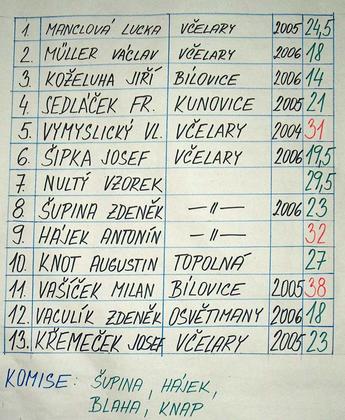 1. MANCLOVÁ LUCKA VČELARY 2005 24,5
2. MÜLLER VÁCLAV VČELARY 2006 18
3. KOŽELUHA JIŘÍ BÍLOVICE 2006 14
4. SEDLÁČEK FR. KUNOVICE 2005 21
5. VYMYSLICKÝ VL. VČELARY 2004 31
6. ŠIPKA JOSEF VČELARY 2006 19,5
7. NULTÝ VZOREK 29,5
8. ŠUPINA ZDENĚK —〃— 2006 23
9. HÁJEK ANTONÍN —〃— 32
10. KNOT AUGUSTIN TOPOLNÁ 27
11. VAŠÍČEK MILAN BÍLOVICE 2005 38
12. VACULÍK ZDENĚK OSVĚTIMANY 2006 18
13. KŘEMEČEK JOSEF VČELARY 2005 23
KOMISE: ŠUPINA, HÁJEK,
BLAHA, KNAP